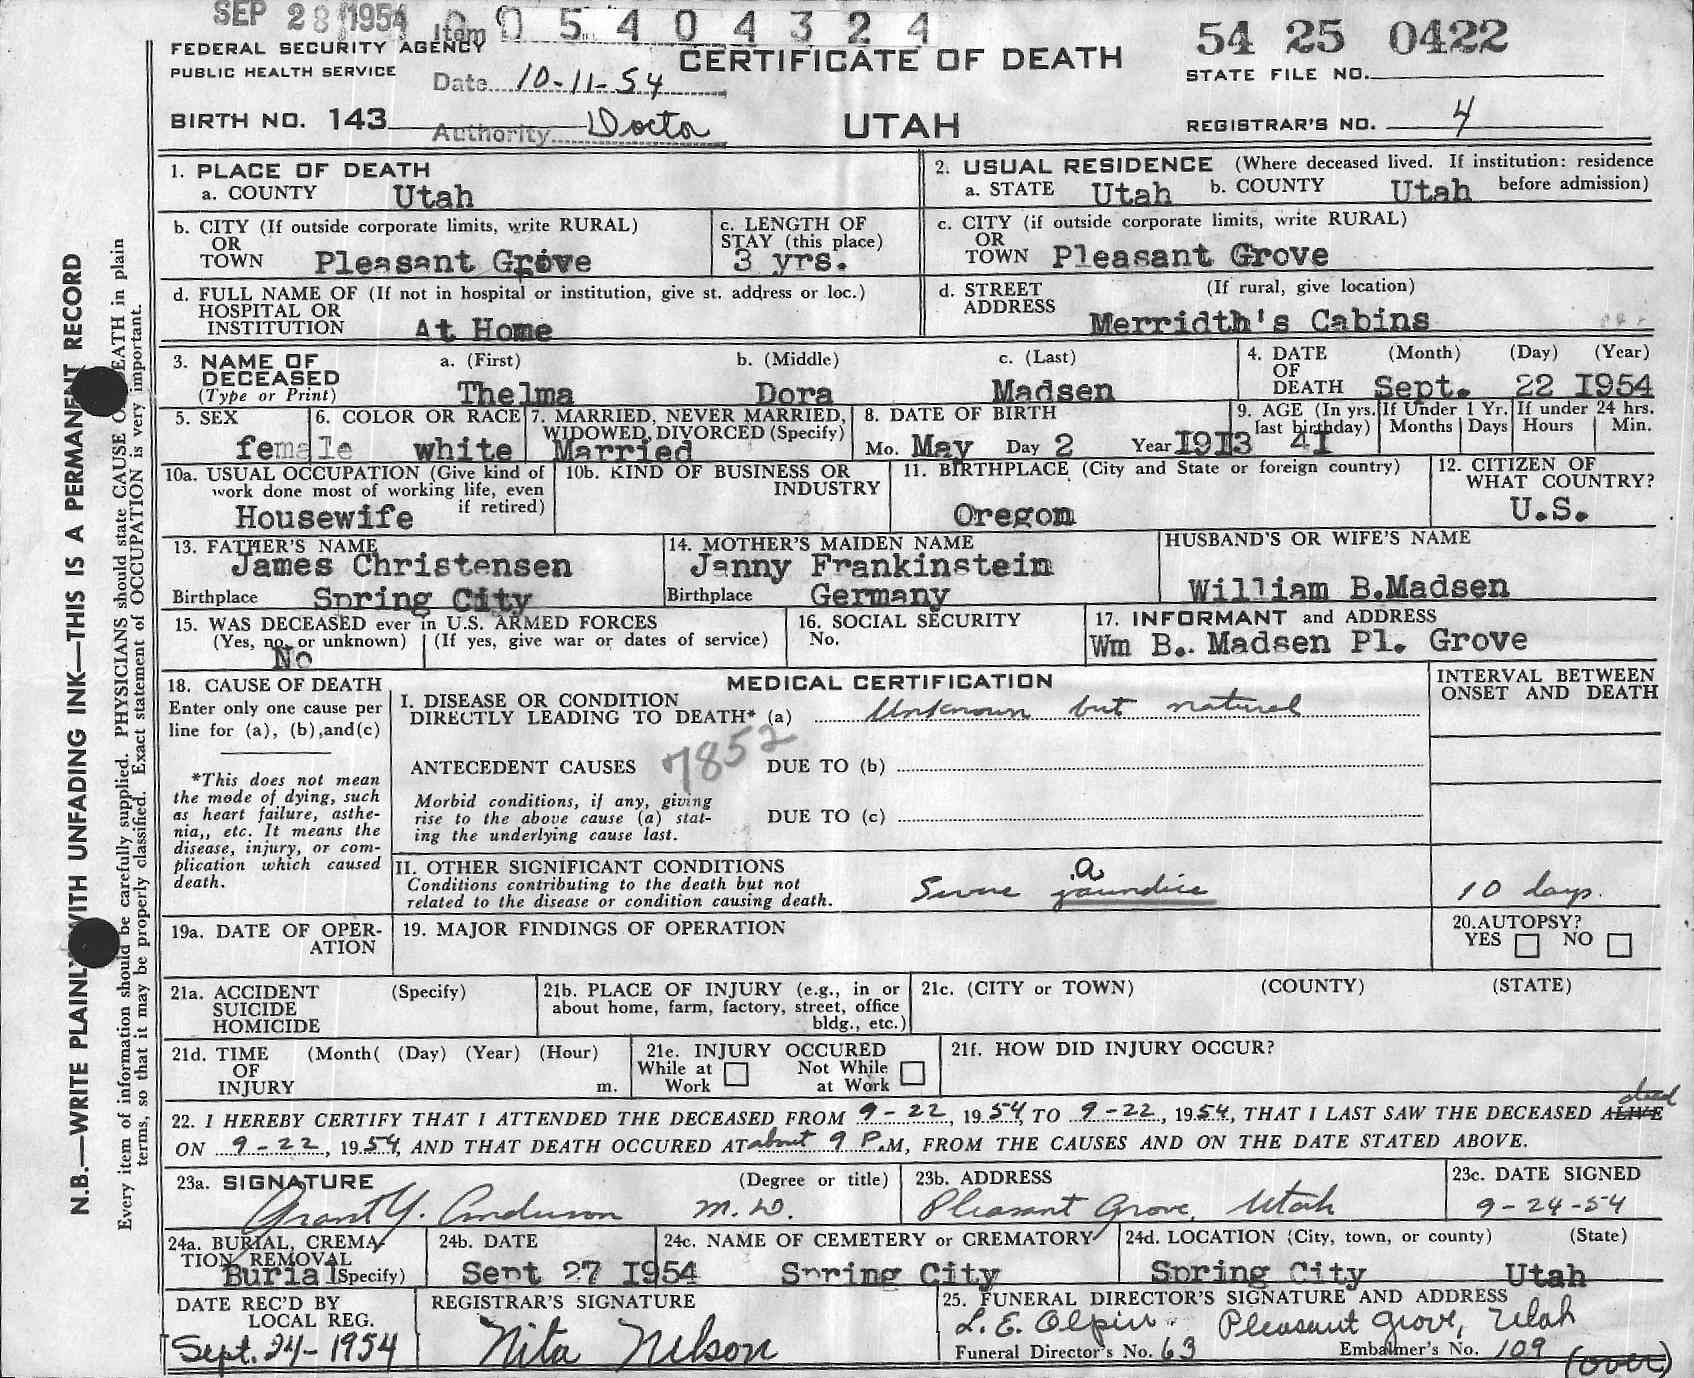 SEP 28 1954 Item 0 5 4 0 4 3 2 4 54 25 0422
FEDERAL SECURITY AGENCY CERTIFICATE OF DEATH
PUBLIC HEALTH SERVICE Date 10-11-54 STATE FILE NO.
BIRTH NO. 143 Authority Docto UTAH REGISTRAR'S NO. 4
1. PLACE OF DEATH
a. COUNTY Utah
2. USUAL RESIDENCE (Where deceased lived. If institution: residence
a. STATE Utah b. COUNTY Utah before admission)
b. CITY (If outside corporate limits, write RURAL)
OR
TOWN Pleasant Grove
c. LENGTH OF
STAY (this place)
3 yrs.
c. CITY (if outside corporate limits, write RURAL)
OR
TOWN Pleasant Grove
d. FULL NAME OF (If not in hospital or institution, give st. address or loc.)
HOSPITAL OR
INSTITUTION At Home
d. STREET (If rural, give location)
ADDRESS
Merridth's Cabins
3. NAME OF a. (First) b. (Middle) c. (Last)
DECEASED
(Type or Print) Thelma Dora Madsen
4. DATE (Month) (Day) (Year)
OF
DEATH Sept. 22 I954
5. SEX
female
6. COLOR OR RACE
white
7. MARRIED, NEVER MARRIED,
WIDOWED, DIVORCED (Specify)
Married
8. DATE OF BIRTH
Mo. May Day 2 Year I9I3
9. AGE (In yrs.
last birthday)
4I
If Under 1 Yr.
Months Days
If under 24 hrs.
Hours Min.
10a. USUAL OCCUPATION (Give kind of
work done most of working life, even
if retired)
Housewife
10b. KIND OF BUSINESS OR
INDUSTRY
11. BIRTHPLACE (City and State or foreign country)
Oregon
12. CITIZEN OF
WHAT COUNTRY?
U.S.
13. FATHER'S NAME
James Christensen
Birthplace Spring City
14. MOTHER'S MAIDEN NAME
Janny Frankinstein
Birthplace Germany
HUSBAND'S OR WIFE'S NAME
William B.Madsen
15. WAS DECEASED ever in U.S. ARMED FORCES
(Yes, no, or unknown) (If yes, give war or dates of service)
No
16. SOCIAL SECURITY
No.
17. INFORMANT and ADDRESS
Wm B. Madsen Pl. Grove
18. CAUSE OF DEATH
Enter only one cause per
line for (a), (b),and(c)
*This does not mean
the mode of dying, such
as heart failure, asthe-
nia,, etc. It means the
disease, injury, or com-
plication which caused
death.
MEDICAL CERTIFICATION
INTERVAL BETWEEN
ONSET AND DEATH
I. DISEASE OR CONDITION
DIRECTLY LEADING TO DEATH* (a) Unknown but natural
ANTECEDENT CAUSES 7852 DUE TO (b)
Morbid conditions, if any, giving
rise to the above cause (a) stat-
ing the underlying cause last.
DUE TO (c)
II. OTHER SIGNIFICANT CONDITIONS
Conditions contributing to the death but not
related to the disease or condition causing death.
a
Severe jaundice 10 days.
19a. DATE OF OPER-
ATION
19. MAJOR FINDINGS OF OPERATION
20.AUTOPSY?
YES NO
21a. ACCIDENT (Specify)
SUICIDE
HOMICIDE
21b. PLACE OF INJURY (e.g., in or
about home, farm, factory, street, office
bldg., etc.)
21c. (CITY or TOWN) (COUNTY) (STATE)
21d. TIME (Month( (Day) (Year) (Hour)
OF
INJURY m.
21e. INJURY OCCURED
While at Not While
Work at Work
21f. HOW DID INJURY OCCUR?
dead
22. I HEREBY CERTIFY THAT I ATTENDED THE DECEASED FROM 9-22, 1954, TO 9-22, 1954, THAT I LAST SAW THE DECEASED ALIVE
ON 9-22, 1954, AND THAT DEATH OCCURED AT about 9 P.M, FROM THE CAUSES AND ON THE DATE STATED ABOVE.
23a. SIGNATURE (Degree or title)
Grant Y. Anderson M.D.
23b. ADDRESS
Pleasant Grove, Utah
23c. DATE SIGNED
9-24-54
24a. BURIAL, CREMA-
TION, REMOVAL
Burial (Specify)
24b. DATE
Sept 27 I954
24c. NAME OF CEMETERY or CREMATORY
Spring City
24d. LOCATION (City, town, or county) (State)
Spring City Utah
DATE REC'D BY
LOCAL REG.
Sept. 24-1954
REGISTRAR'S SIGNATURE
Nita Nelson
25. FUNERAL DIRECTOR'S SIGNATURE AND ADDRESS
L. E. Olpin. Pleasant Grove, Utah
Funeral Director's No. 63 Embalmer's No. 109
(over)
N.B.—WRITE PLAINLY WITH UNFADING INK—THIS IS A PERMANENT RECORD
Every item of information should be carefully supplied. PHYSICIANS should state CAUSE OF DEATH in plain
terms, so that it may be properly classified. Exact statement of OCCUPATION is very important.